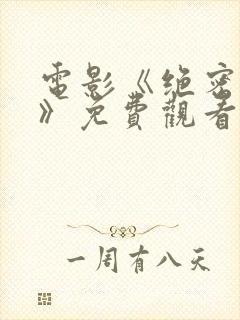 電影《绝密
》免費觀看
一周有八天